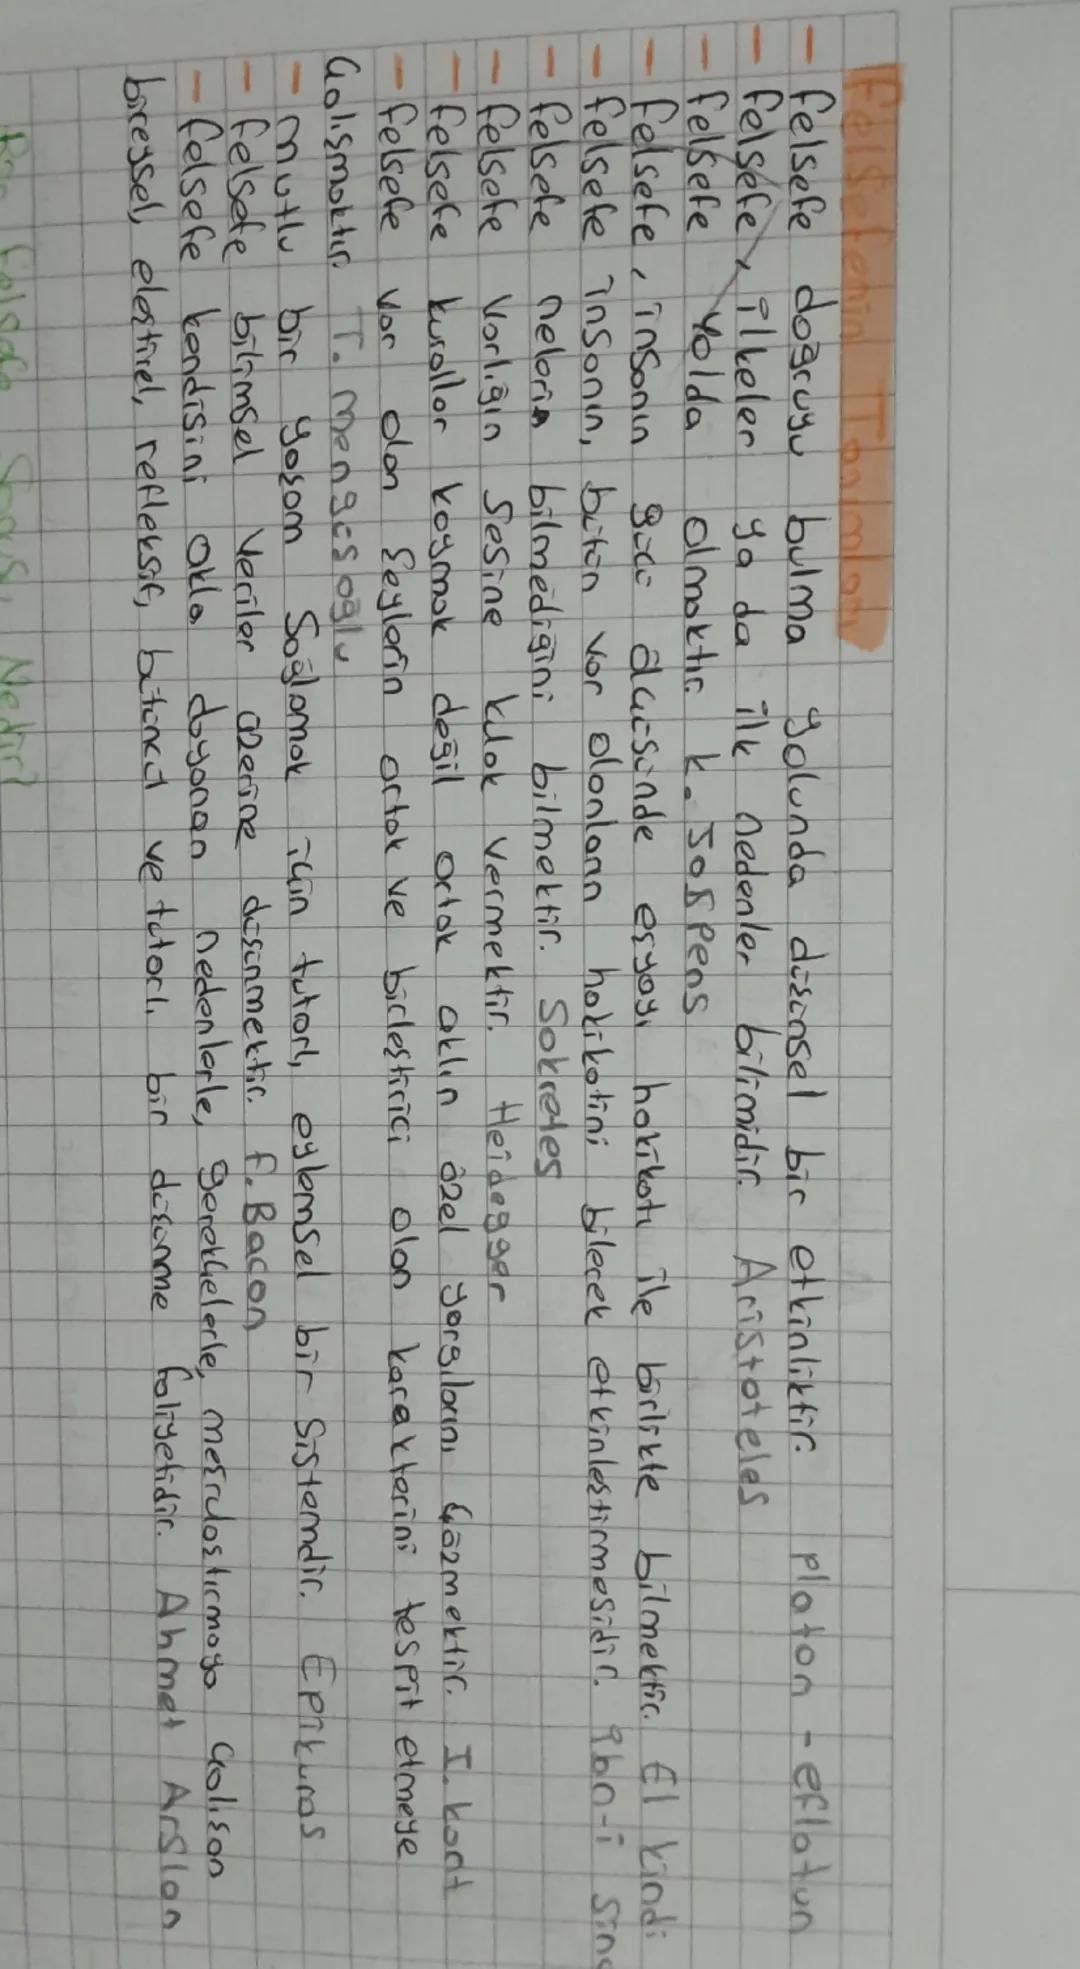 Felsefenin Tanımları
- felsefe doğruyu bulma yolunda düşünsel bir etkinliktir. platon - eflatun
- felsefe, ilkeler ya da ilk nedenler bilimidir. Aristoteles
- felsefe yolda olmaktır. k. Jospens
- felsefe, insanın gücü dücüsünde eşyayı hakikatı ile birlikte bilmektir. El kindi
- felsefe insanın, bütün var olanların hakikatini bilerek etkinleştirmesidir. İbn-i Sina
- felsefe nelerin bilmediğini bilmektir. Sokretes
- felsefe varlığın sesine kulak vermektir. Heidegger
- felsefe kurallar koymak değil ortak aklın özel yargılarını çözmektir. I. kant
- felsefe var olan şeylerin ortak ve birleştirici olan karakterini tespit etmeye
çalışmaktır. T. mengüsoğlu
- mutlu bir yaşam sağlamak için tutarlı, eylemsel bir sistemdir. Epikuros
- felsefe bilimsel veriler üzerine düşünmektir. f. Bacon
- felsefe kendisini akla dayanan nedenlerle, gerekçelerle, meşrulaştırmaya çalışan
bireysel, eleştirel, refleksif, bütüncül ve tutarlı bir düşünme faliyetidir. Ahmet Arslan
felsefe Nedir?